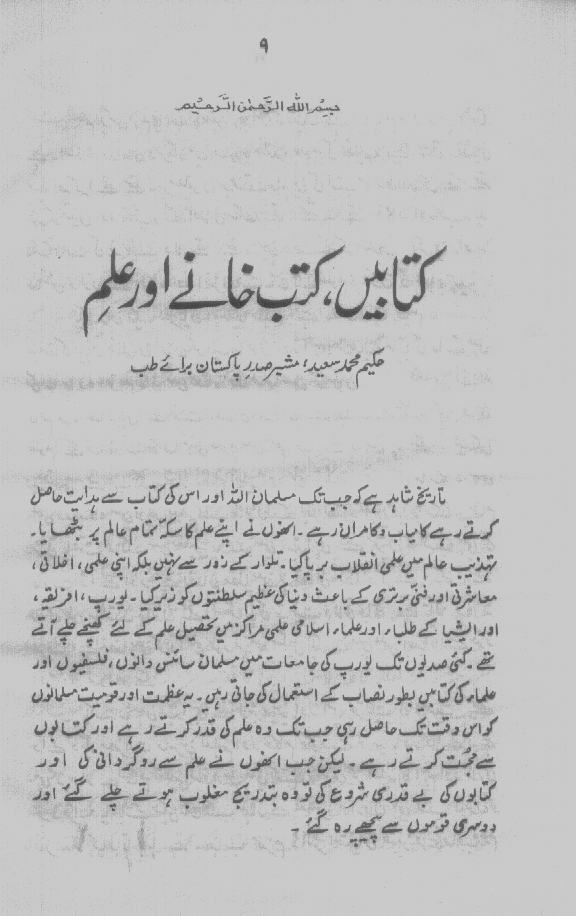 ۹
بسم اللہ الرحمٰن الرحیم
کتابیں، کتب خانے اور علم
حکیم محمد سعید، مشیر صدرِ پاکستان برائے طب
تاریخ شاہد ہے کہ جب تک مسلمان اللہ اور اس کی کتاب سے ہدایت حاصل
کرتے رہے کامیاب و کامران رہے۔ انھوں نے اپنے علم کا سکّہ تمام عالم پر بٹھایا۔
تہذیب عالم میں علمی انقلاب برپا کیا۔ تلوار کے زور سے نہیں بلکہ اپنی علمی، اخلاقی،
معاشرتی اور فنی برتری کے باعث دنیا کی عظیم سلطنتوں کو زیر کیا۔ یورپ، افریقہ،
اور ایشیا کے طلباء اور علماء اسلامی علمی مراکز میں تحصیل علم کے لئے کھنچے چلے آتے
تھے۔ کئی صدیوں تک یورپ کی جامعات میں مسلمان سائنس دانوں، فلسفیوں اور
علماء کی کتابیں بطور نصاب کے استعمال کی جاتی رہیں۔ یہ عظمت اور قومیت مسلمانوں
کو اس وقت تک حاصل رہی جب تک وہ علم کی قدر کرتے رہے اور کتابوں
سے محبّت کرتے رہے۔ لیکن جب انھوں نے علم سے روگردانی کی اور
کتابوں کی بے قدری شروع کی تو وہ بتدریج مغلوب ہوتے چلے گئے اور
دوسری قوموں سے پیچھے رہ گئے۔